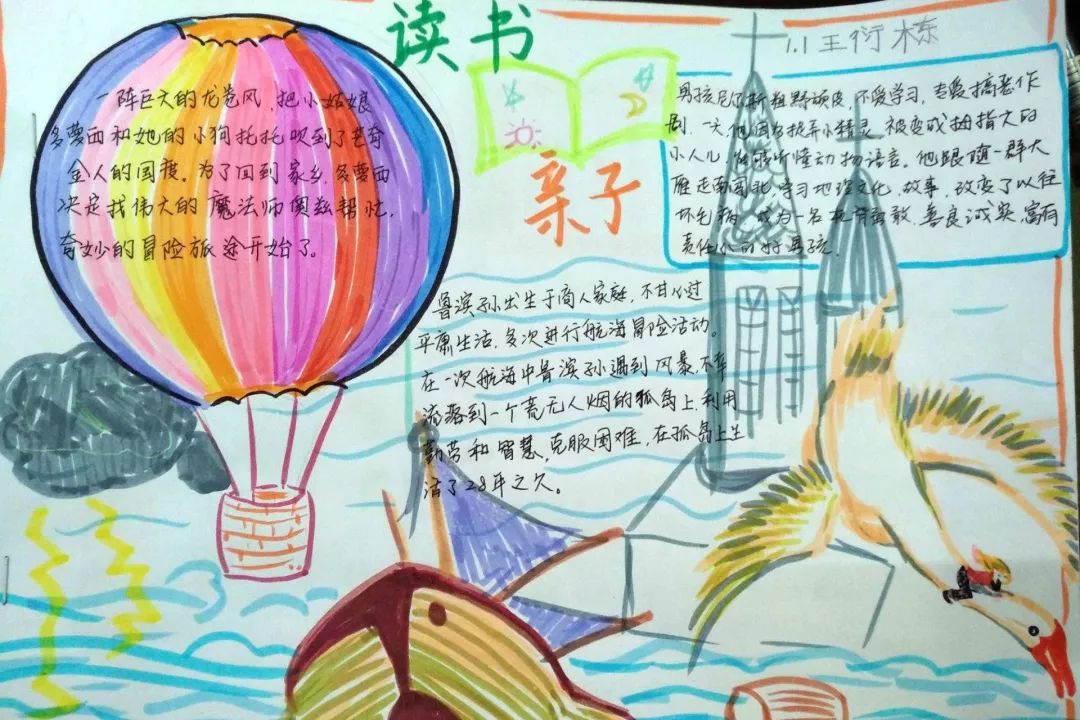 读书
亲子
1.1 王衍栋
一阵巨大的龙卷风，把小姑娘
多萝西和她的小狗托托吹到了
金人的国度。为了回到家乡，多萝西
决定找伟大的魔法师奥兹帮忙，
奇妙的冒险旅途开始了。
男孩尼尔斯粗野顽皮，不爱学习，专爱搞恶作
剧，一天，他因为捉弄小精灵被变成拇指大的
小人儿，能听懂动物语言。他跟随一群大
雁走南闯北，学习地理文化、故事，改变了以往
坏毛病，成为一名勇敢、善良诚实、富有
责任心的好男孩。
鲁滨孙出生于商人家庭，不甘心过
平庸生活，多次进行航海冒险活动。
在一次航海中鲁滨孙遇到风暴，不幸
流落到一个荒无人烟的孤岛上，利用
勤劳和智慧，克服困难，在孤岛上生
活了28年之久。